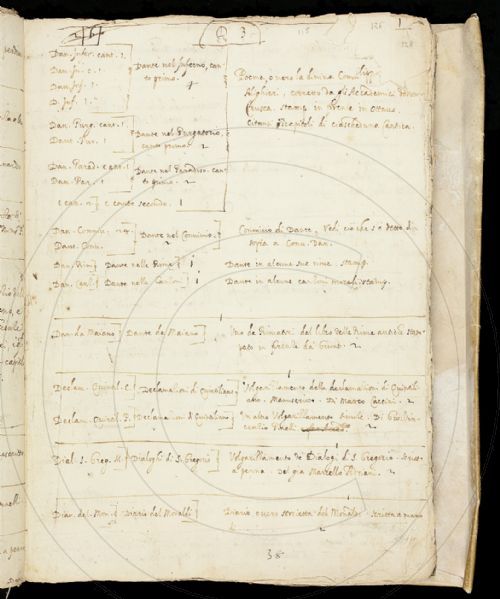 3
115
126
1
128
Dan. Infer. cant. 1.
Dan. In. c. 1.
Dan. Inf. 1.
D. Inf. 1.
Dante nel Inferno, can-
to primo.
Poema, overo la divina Commedia
Alighieri, corretto da gli Accademici
Crusca. stamp. in Firenze in ottavo.
Citansi i capitoli di ciascheduna Cantica.
Dan. Purg. cant. 1.
Dant. Pur. 1.
Dante nel Purgatorio,
canto primo. 2
Dan. Parad. cant. 1.
Dan. Par. 1
Dante nel Paradiso. can-
to primo. 2
e can. 2] e canto secondo. 1
Dan. Conviv.
Dante. Conv.
Dante nel Convivio.
Convivio di Dante. Vedi ciò che s'è detto di
sovra a Conv. Dan.
Dan. Rim] Dante nelle Rime] 1
Dante in alcune sue rime. stamp.
Dan. Canz] Dante nelle Canzoni] 1
Dante in alcune canzoni morali. stamp.
1
Dan. da Maiano] Dante da Maiano]
Uno de Rimatori del libro delle Rime antiche stam-
pato in Firenze da Giunti. 2
1
Declam. Quintil. C.] Declamazioni di Quintiliano]
Volgarizzamento delle declamazioni di Quintili-
ano. Manuscritto. Di Marco
Declam. Quintil. P.] Declamazioni di Quintiliano]
Un altro Volgarizzamento simile. Di
2
Dial. S. Greg. M.] Dialoghi di S. Gregorio]
Volgarizzamento de Dialogi di S. Gregorio. scritto
a penna. del già Marcello Adriani. 2
1
Diar. del Mon.] Diario del Monaldi]
Diario overo scritta del Monaldi. scritta a mano
2
38